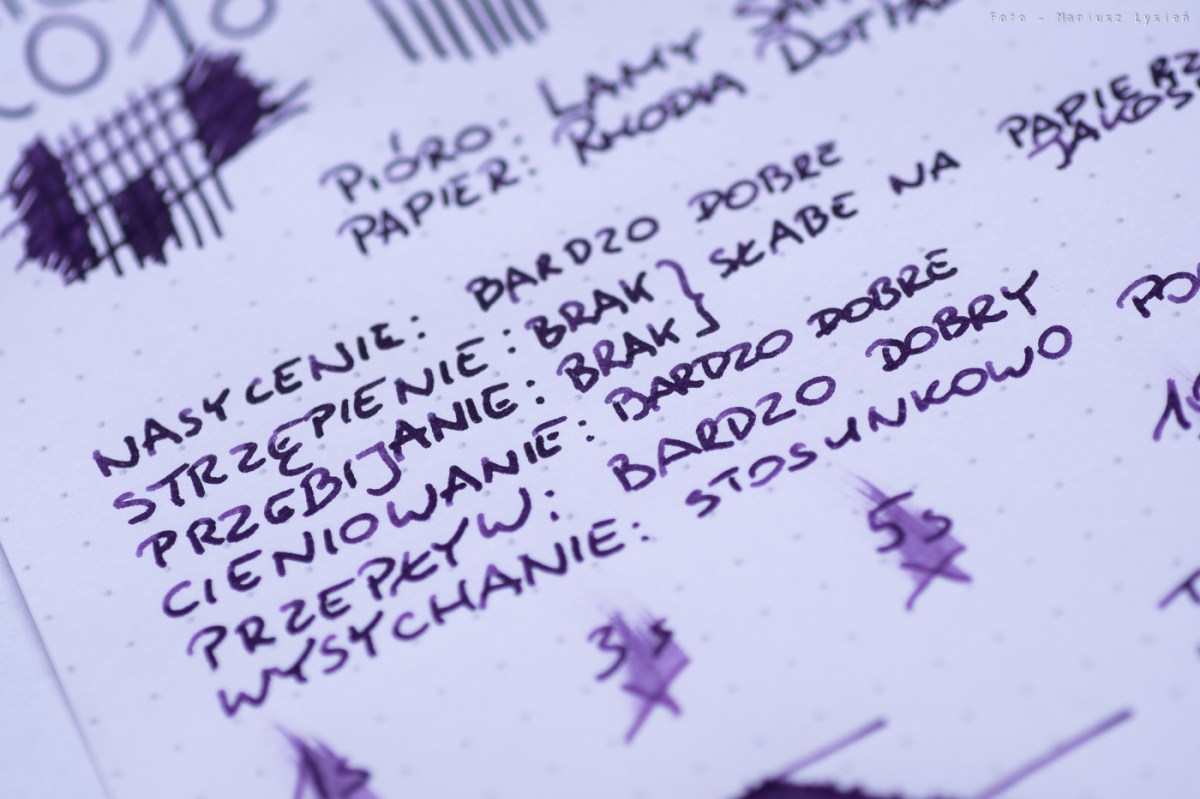 Foto - Mariusz Łysień
PIÓRO: LAMY
PAPIER: RHODIA
NASYCENIE: BARDZO DOBRE
STRZĘPIENIE: BRAK } SŁABE NA
PRZEBIJANIE: BRAK
CIENIOWANIE: BARDZO DOBRE
PRZEPŁYW: BARDZO DOBRY
WYSYCHANIE: STOSUNKOWO
3s 5s